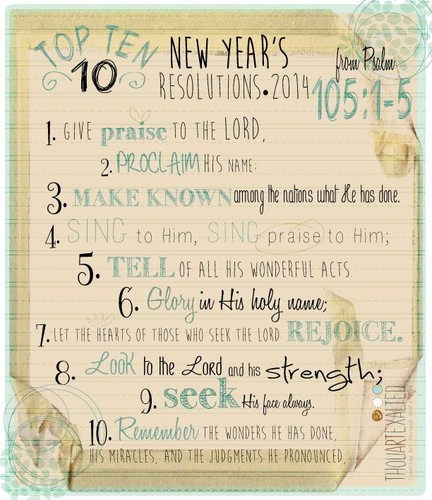 TOP TEN
10
NEW YEAR'S
RESOLUTIONS•2014
from Psalm
105:1-5
1. GIVE praise TO THE LORD,
2. PROCLAIM HIS NAME:
3. MAKE KNOWN among the nations what He has done.
4. SING to Him, SING praise to Him;
5. TELL OF ALL HIS WONDERFUL ACTS.
6. Glory in His holy name;
7. LET THE HEARTS OF THOSE WHO SEEK THE LORD REJOICE.
8. Look to the Lord and his strength;
9. seek His face always.
10. Remember THE WONDERS HE HAS DONE,
HIS MIRACLES, AND THE JUDGMENTS HE PRONOUNCED.
THOUARTEXALTED